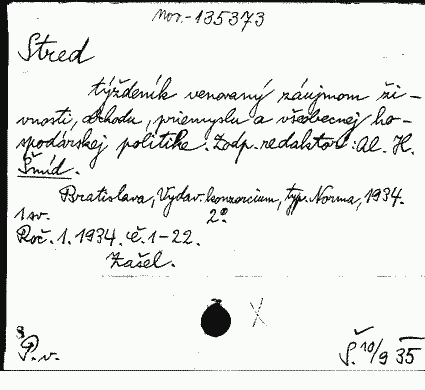 nov.-135373
Stred
týždeník venovaný záujmom ži-
vnosti, obchodu, priemyslu a všeobecnej ho-
spodárskej politike. Zodp. redaktor: Al. H.
Šmíd.
Bratislava, Vydav. konzorcium, typ. Norma, 1934.
1 sv. 2°
Roč. 1. 1934. č. 1-22.
Zašel.
P. v. Š. 10/9 35